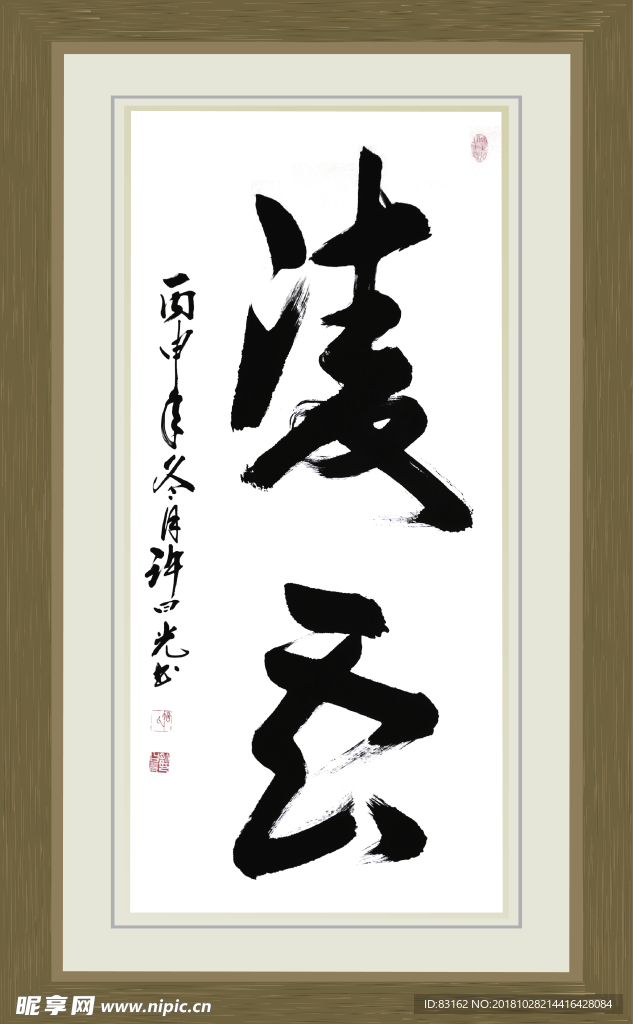 凌云
丙申年冬月许四光书
昵享网 www.nipic.cn
ID:83162 NO:20181028214416428084